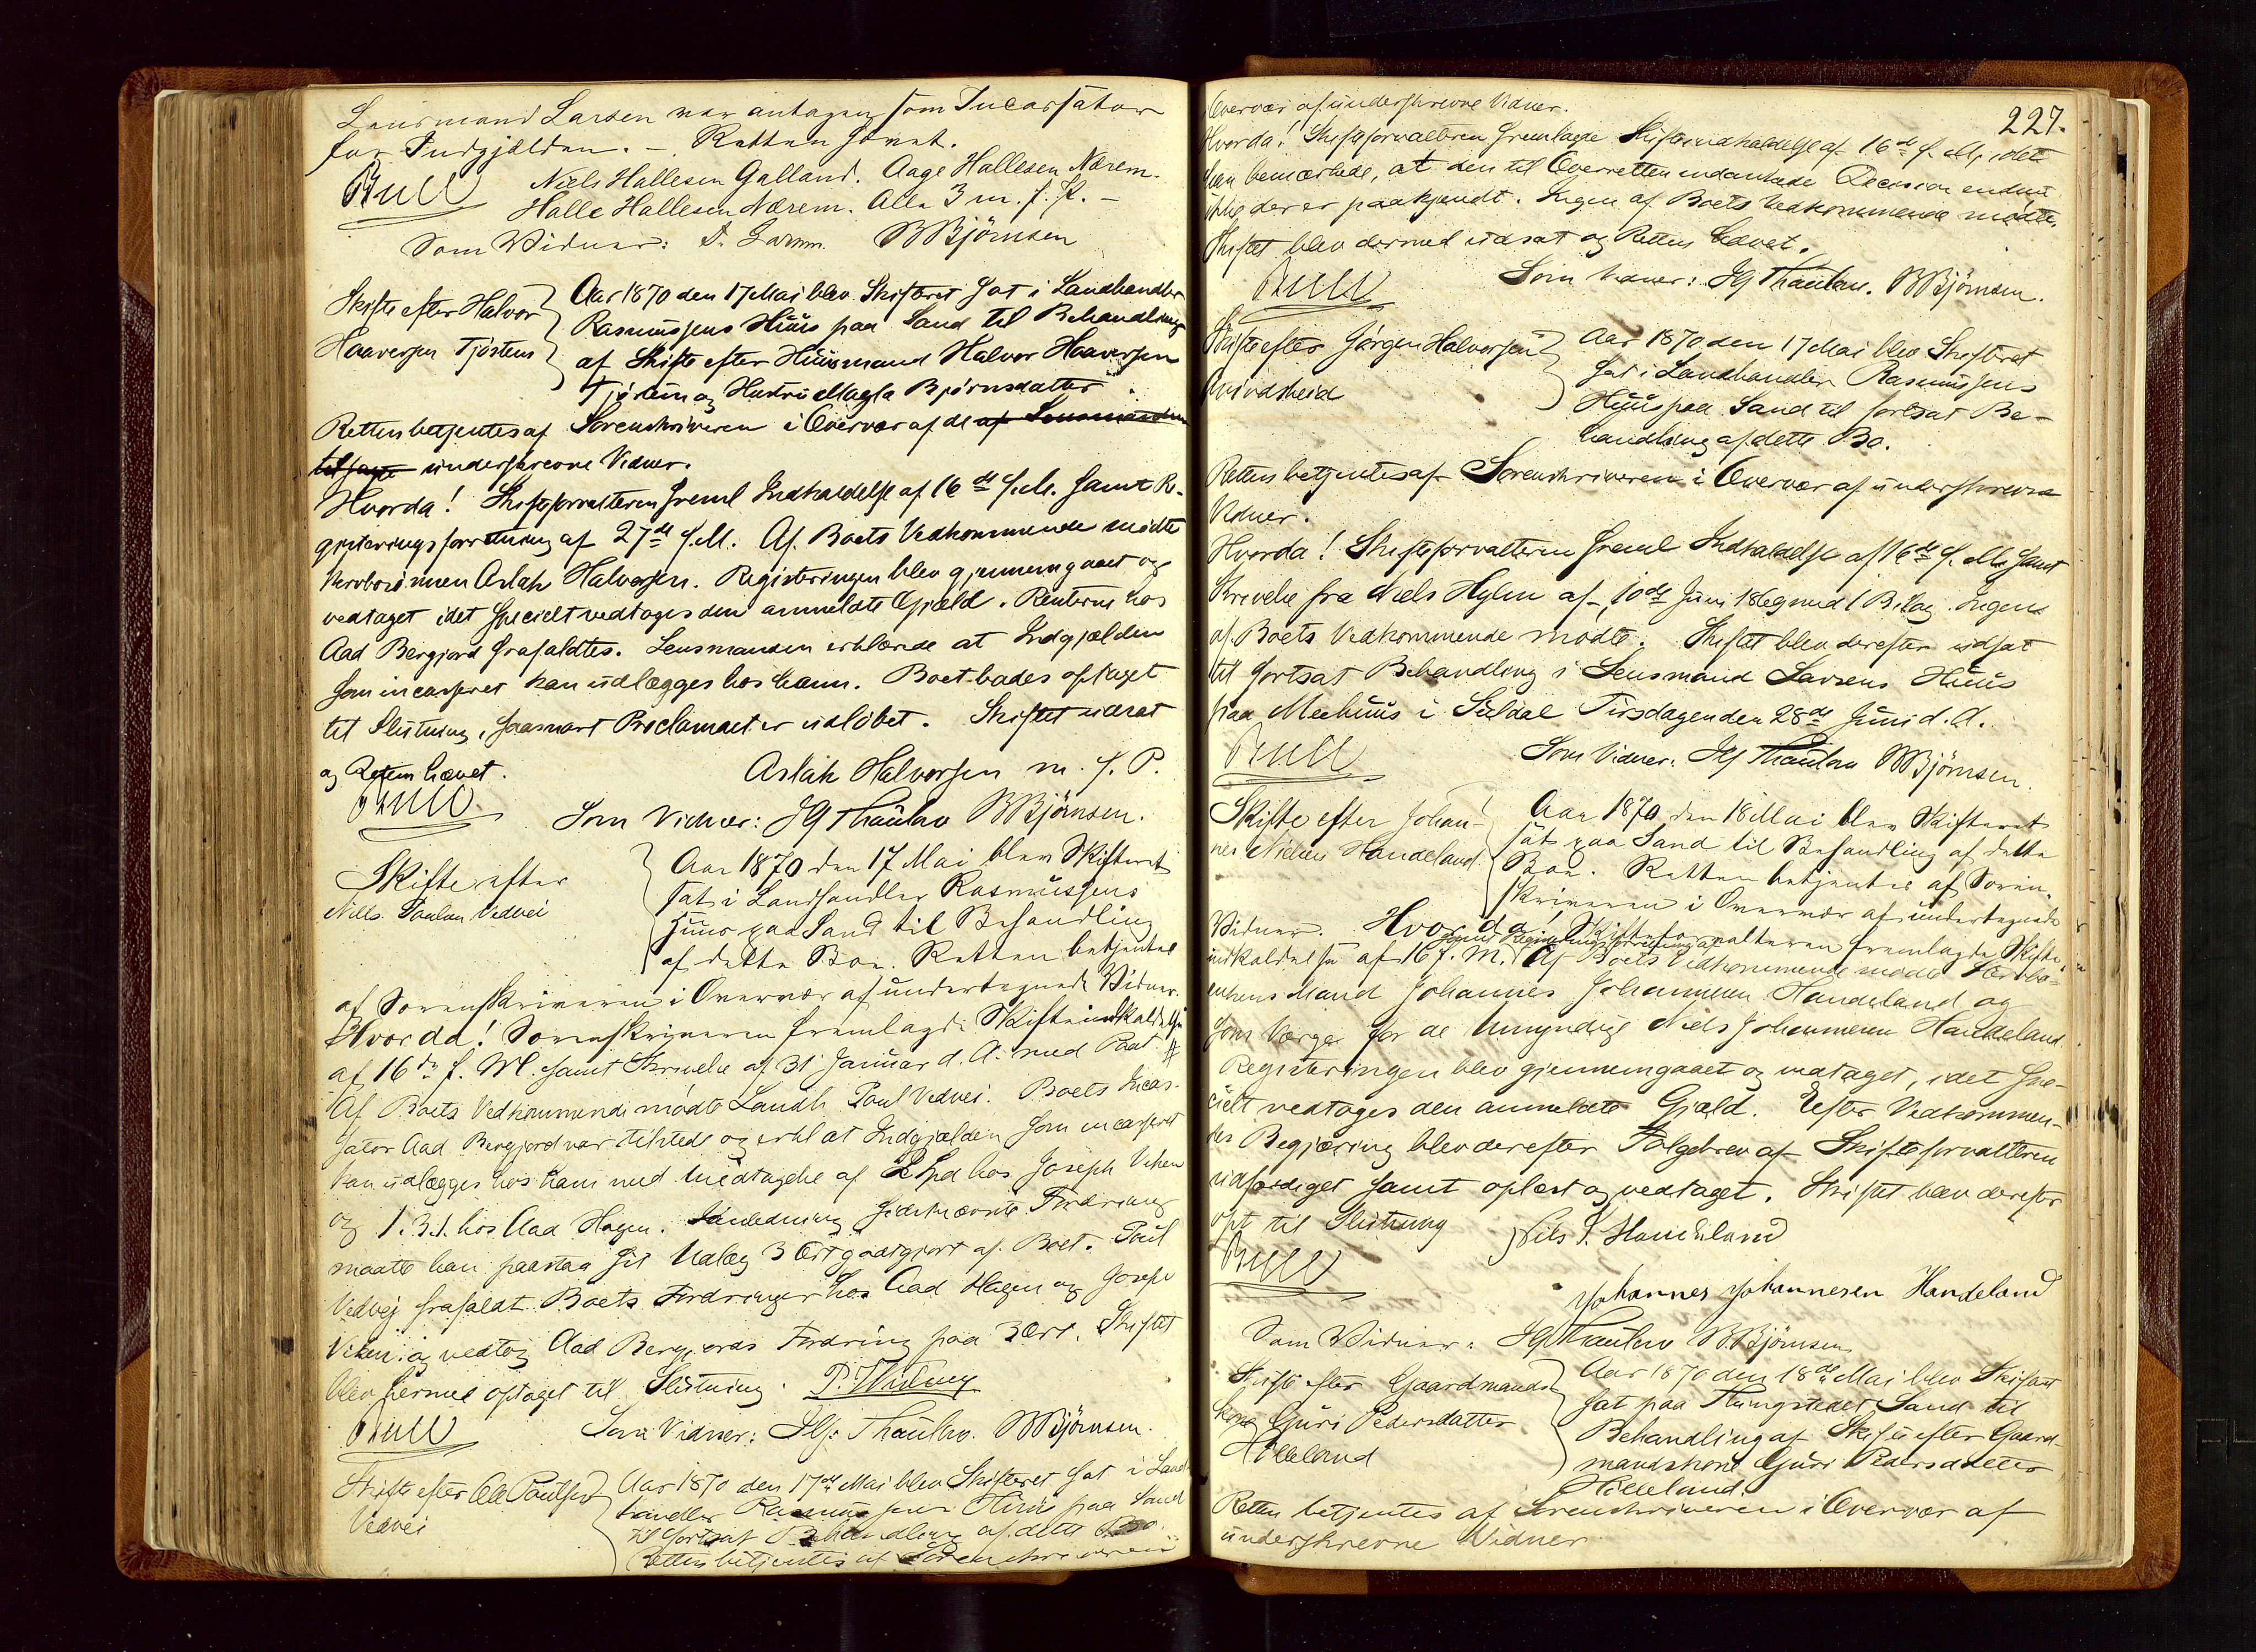 Lensmand Larsen var antagen som Incassator
for Indgjælden. – Retten hævet.
Bull Niels Hallesen Galland. Aage Hallesen Nærem.
Halle Hallesen Nærem. Alle 3 m. f. P. –
Som Vidner: BBjörnsen
Skifte efter Halvor
Haaversen Tjøstem
Aar 1870 den 17 Mai blev Skifteret sat i Landhandler
Rasmussens Huus paa Sand til Behandling
af Skifte efter Huusmand Halvor Haaversen
Tjøstem og Hustru Magla Bjørnsdatter.
Retten betjentes af Sorenskriveren i Overvær af de af Lensmanden
tilsagte underskrevne Vidner.
Hvorda! Skifteforvalteren freml Indkaldelse af 16de f. M. samt Re-
gisteringsforretning af 27de f. M. Af Boets Vedkommende mødte
Aslak Halvorsen. Registeringen blev gjennemgaaet og
vedtaget idet specielt vedtoges den anmeldte Gjæld. Renterne hos
Aad Bergjord frafaldtes. Lensmanden erklærede at Indgjælden
som incasseret kan udlægges hos ham. Boet bades optaget
til Slutning, saasnart Proclamaet er udløbet. Skiftet udsat
og Retten hævet. Aslak Halvorsen m. f. P.
Bull
Som Vidner: JG Thaulow BBjörnsen.
Skifte efter
Nills Paulsen Vedvei
Aar 1870 den 17 Mai blev Skifteret
sat i Landhandler Rasmussens
Huus paa Sand til Behandling
af dette Boe. Retten betjentes
af Sorenskriveren i Overvær af undertegnede Vidner.
Hvorda! Sorenskriveren fremlagde Skifteindkaldelse
af 16de f. M. samt Skrivelse af 31 Januar d. A. med Paat.
Af Boets Vedkommende mødte Landh. Poul Vedvei. Boets Incas-
sator Aad Bergjord var tilstede og erkl at Indgjælden som incasseret
kan udlægges hos ham med Undtagelse af 2 Spd hos Joseph Viken
og 1. 3. 1. hos Aad Hagen. I Anledning sidstnævnte Fordring
maatte han paastaa sit Udlæg 3 Ort godtgjort af Boet. Poul
Vedvej frafaldt Boets Fordringer hos Aad Hagen og Joseph
Viken og vedtog Aad Bergjords Fordring paa 3 Ort. Skiftet
blev hermed optaget til Slutning.
Bull
Som Vidner: JG Thaulow. BBjörnsen.
Skifte efter Ole Poulsen
Vedvei
Aar 1870 den 17de Mai blev Skifteret sat i Land-
handler Rasmussens Huus paa Sand
til fortsat Behandling af dette Bo.
Retten betjentes af Sorenskriveren i
227.
Overvær af underskrevne Vidner.
Hvorda! Skifteforvalteren fremlagde Skifteindkaldelse af 16de f. M., idet
han bemærkede, at den til Overretten indankede Decision endnu
ikke der er paakjendt. Ingen af Boets Vedkommende mødte.
Skiftet blev dermed udsat og Retten hævet.
Bull
Som Vidner: JG Thaulow. BBjörnsen.
Skifte efter Jørgen Halvorsen
Qvindsheid
Aar 1870 den 17 Mai blev Skifteret
sat i Landhandler Rasmussens
Huus paa Sand til fortsat Be-
handling af dette Bo.
Retten betjentes af Sorenskriveren i Overvær af underskrevne
Vidner.
Hvorda! Skifteforvalteren freml Indkaldelse af 16de f. M. samt
Skrivelse fra Niels Hylen af 10de Juni 1869 med 1 Bilag. Ingen
af Boets Vedkommende mødte. Skiftet blev derefter udsat
til fortsat Behandling i Lensmand Larsens Huus
paa Mechuus i Suldal Tirsdagen den 28de Juni d. A.
Bull
Som Vidner: JG Thaulow BBjörnsen.
Skifte efter Johan-
nes Nielsen Handeland.
Aar 1870 den 18 Mai blev Skifteret
sat paa Sand til Behandling af dette
Boe. Retten betjentes af Soren-
skriveren i Overvær af undertegnede
Vidner. Hvorda! Skifteforvalteren fremlagde Skifte-
samt Registeringsforretning af
indkaldelse af 16 f. M. Af Boets Vedkommende mødte
Johannes Johannesen Handeland og
som Værge for de Umyndige Niels Johannesen Handeland.
Registeringen blev gjennemgaaet og vedtaget, idet spe-
cielt vedtoges den anmeldte Gjæld. Efter Vedkommen-
des Begjæring blev derefter Følgebrev af Skifteforvalteren
udfærdiget samt oplæst og vedtaget. Skiftet blev derefter
opt til Slutning Nils J. Handeland
Bull
Johannes Johannesen Handeland
Som Vidner: JG Thaulow BBjörnsen
Skifte efter Gaardmands-
kone Guri Pedersdatter
Hilleland
Aar 1870 den 18de Mai blev Skifteret
sat paa Thingstedet Sand til
Behandling af Skifte efter Gaard-
mandskone Guri Pedersdatter
Hilleland.
Retten betjentes af Sorenskriveren i Overvær af
underskrevne Vidner